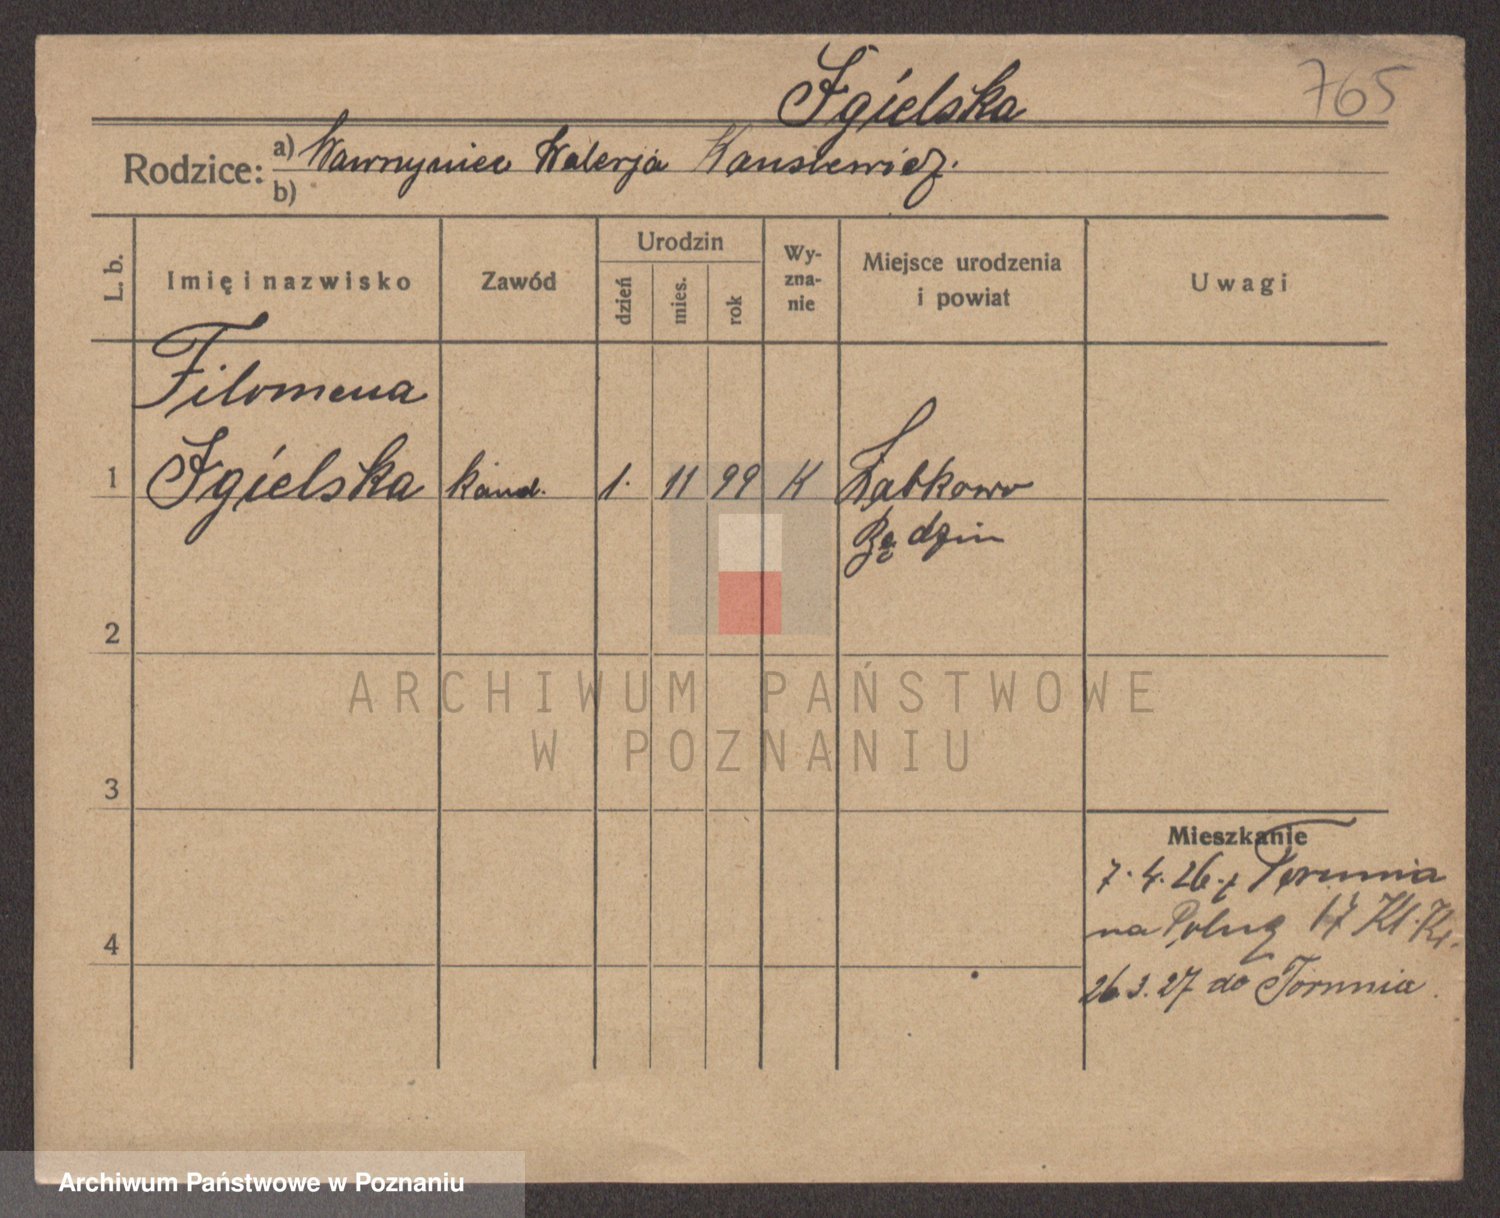 Igielska
765
Rodzice: a) Wawrzyniec Walerja
b)
L. b.
Imię i nazwisko
Zawód
Urodzin
dzień
mies.
rok
Wy-
zna-
nie
Miejsce urodzenia
i powiat
Uwagi
Filomena
1 Igielska kand. 1. 11 99 K Ząbkowo
Będzin
2
ARCHIWUM PAŃSTWOWE
W POZNANIU
3
4
Mieszkanie
7. 4. 26. z Torunia
na 17 Kl.
26.3.27 do Torunia.
Archiwum Państwowe w Poznaniu